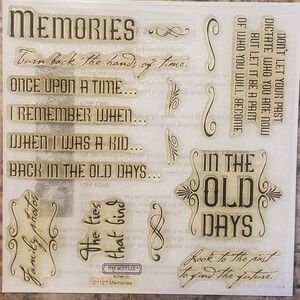 MEMORIES
Turn back the hands of time.
ONCE UPON A TIME...
I REMEMBER WHEN...
WHEN I WAS A KID...
BACK IN THE OLD DAYS...
DON'T LET YOUR PAST
DICTATE WHO YOU ARE NOW
BUT LET IT BE A PART
OF WHO YOU WILL BECOME
IN THE
OLD
DAYS
Family stories
The ties
that bind
Look to the past
to find the future.
D1127 Memories